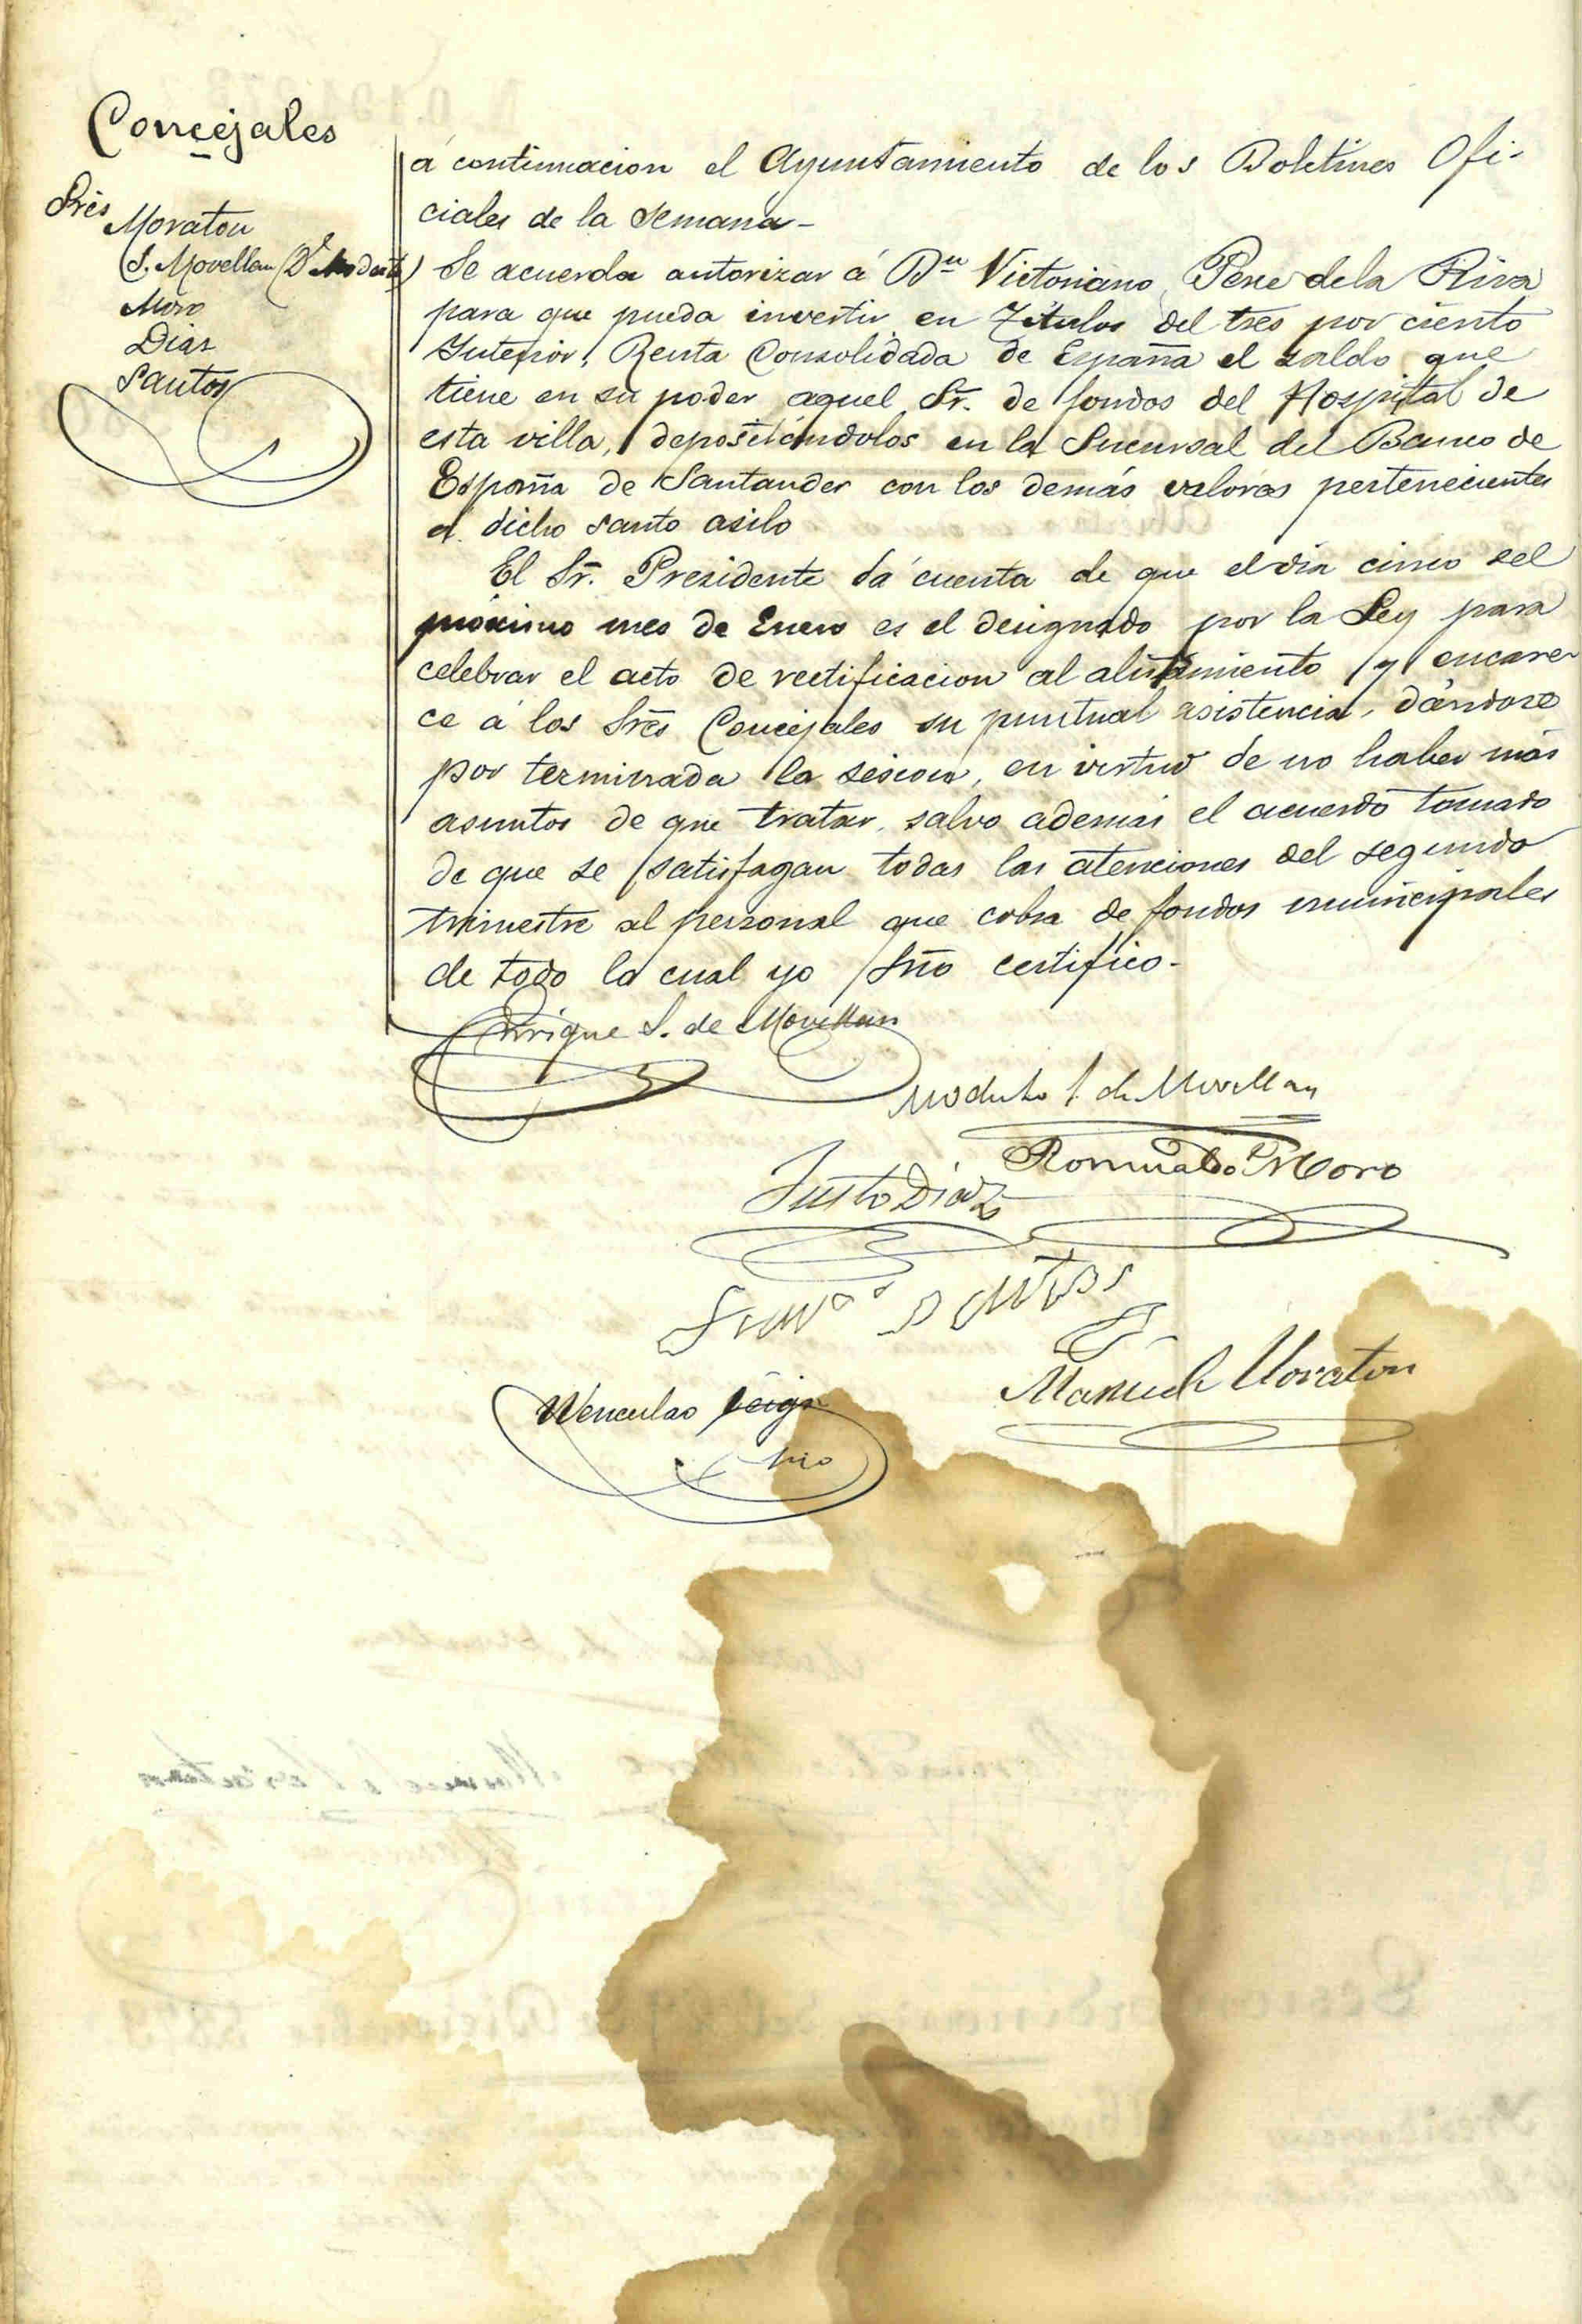 Concejales
Sres
Moraton
(S. Movellan (Dn Modesto)
Moro
Diaz
Santos
á continuacion el Ayuntamiento de los Boletines Ofi-
ciales de la semana-
Se acuerda autorizar á Dn Victoriano Pere de la Riva
para que pueda invertir en Títulos del tres por ciento
Interior, Renta Consolidada de España el saldo que
tiene en su poder aquel Sr. de fondos del Hospital de
esta villa, depositándolos en la Sucursal del Banco de
España de Santander con los demás valores pertenecientes
á dicho santo asilo
El Sr. Presidente dá cuenta de que el dia cinco del
próximo mes de Enero es el designado por la Ley para
celebrar el acto de rectificacion al alistamiento y encare-
ce á los Sres Concejales su puntual asistencia, dándose
por terminada la sesion, en virtud de no haber más
asuntos de que tratar, salvo además el acuerdo tomado
de que se satisfagan todas las atenciones del segundo
trimestre al personal que cobra de fondos municipales
de todo lo cual yo Srio certifico-
Enrique S. de Movellan
Modesto S. de Movellan
Romualdo Moro
Justo Diaz
Santos
Manuel Moraton
Wenceslao
Srio